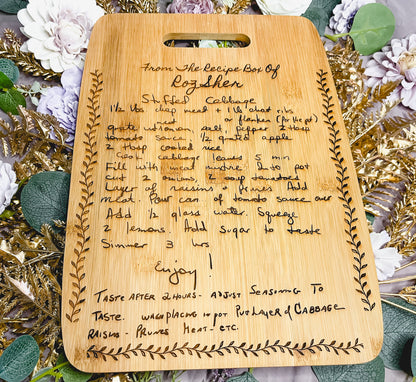 From The Recipe Box Of
Roz Sher
Stuffed Cabbage
1½ lbs chop meat + 1 lb short ribs
or flanken (for the pot)
grate onion, salt, pepper 2 tbsp
tomato sauce 1/2 grated apple
2 tbsp cooked rice
Cook cabbage leaves 5 min
Fill with meat mixture. Into pot
cut 2 onions & 2 soup tomatoes
Layer of raisins + prunes Add
meat. Pour can of tomato sauce over
Add ½ glass water. Squeeze
2 lemons. Add Sugar to taste
Simmer 3 hrs
Enjoy!
Taste after 2 hours - adjust seasoning to
taste. when placing in pot put layer of cabbage
raisins - prunes meat - etc.